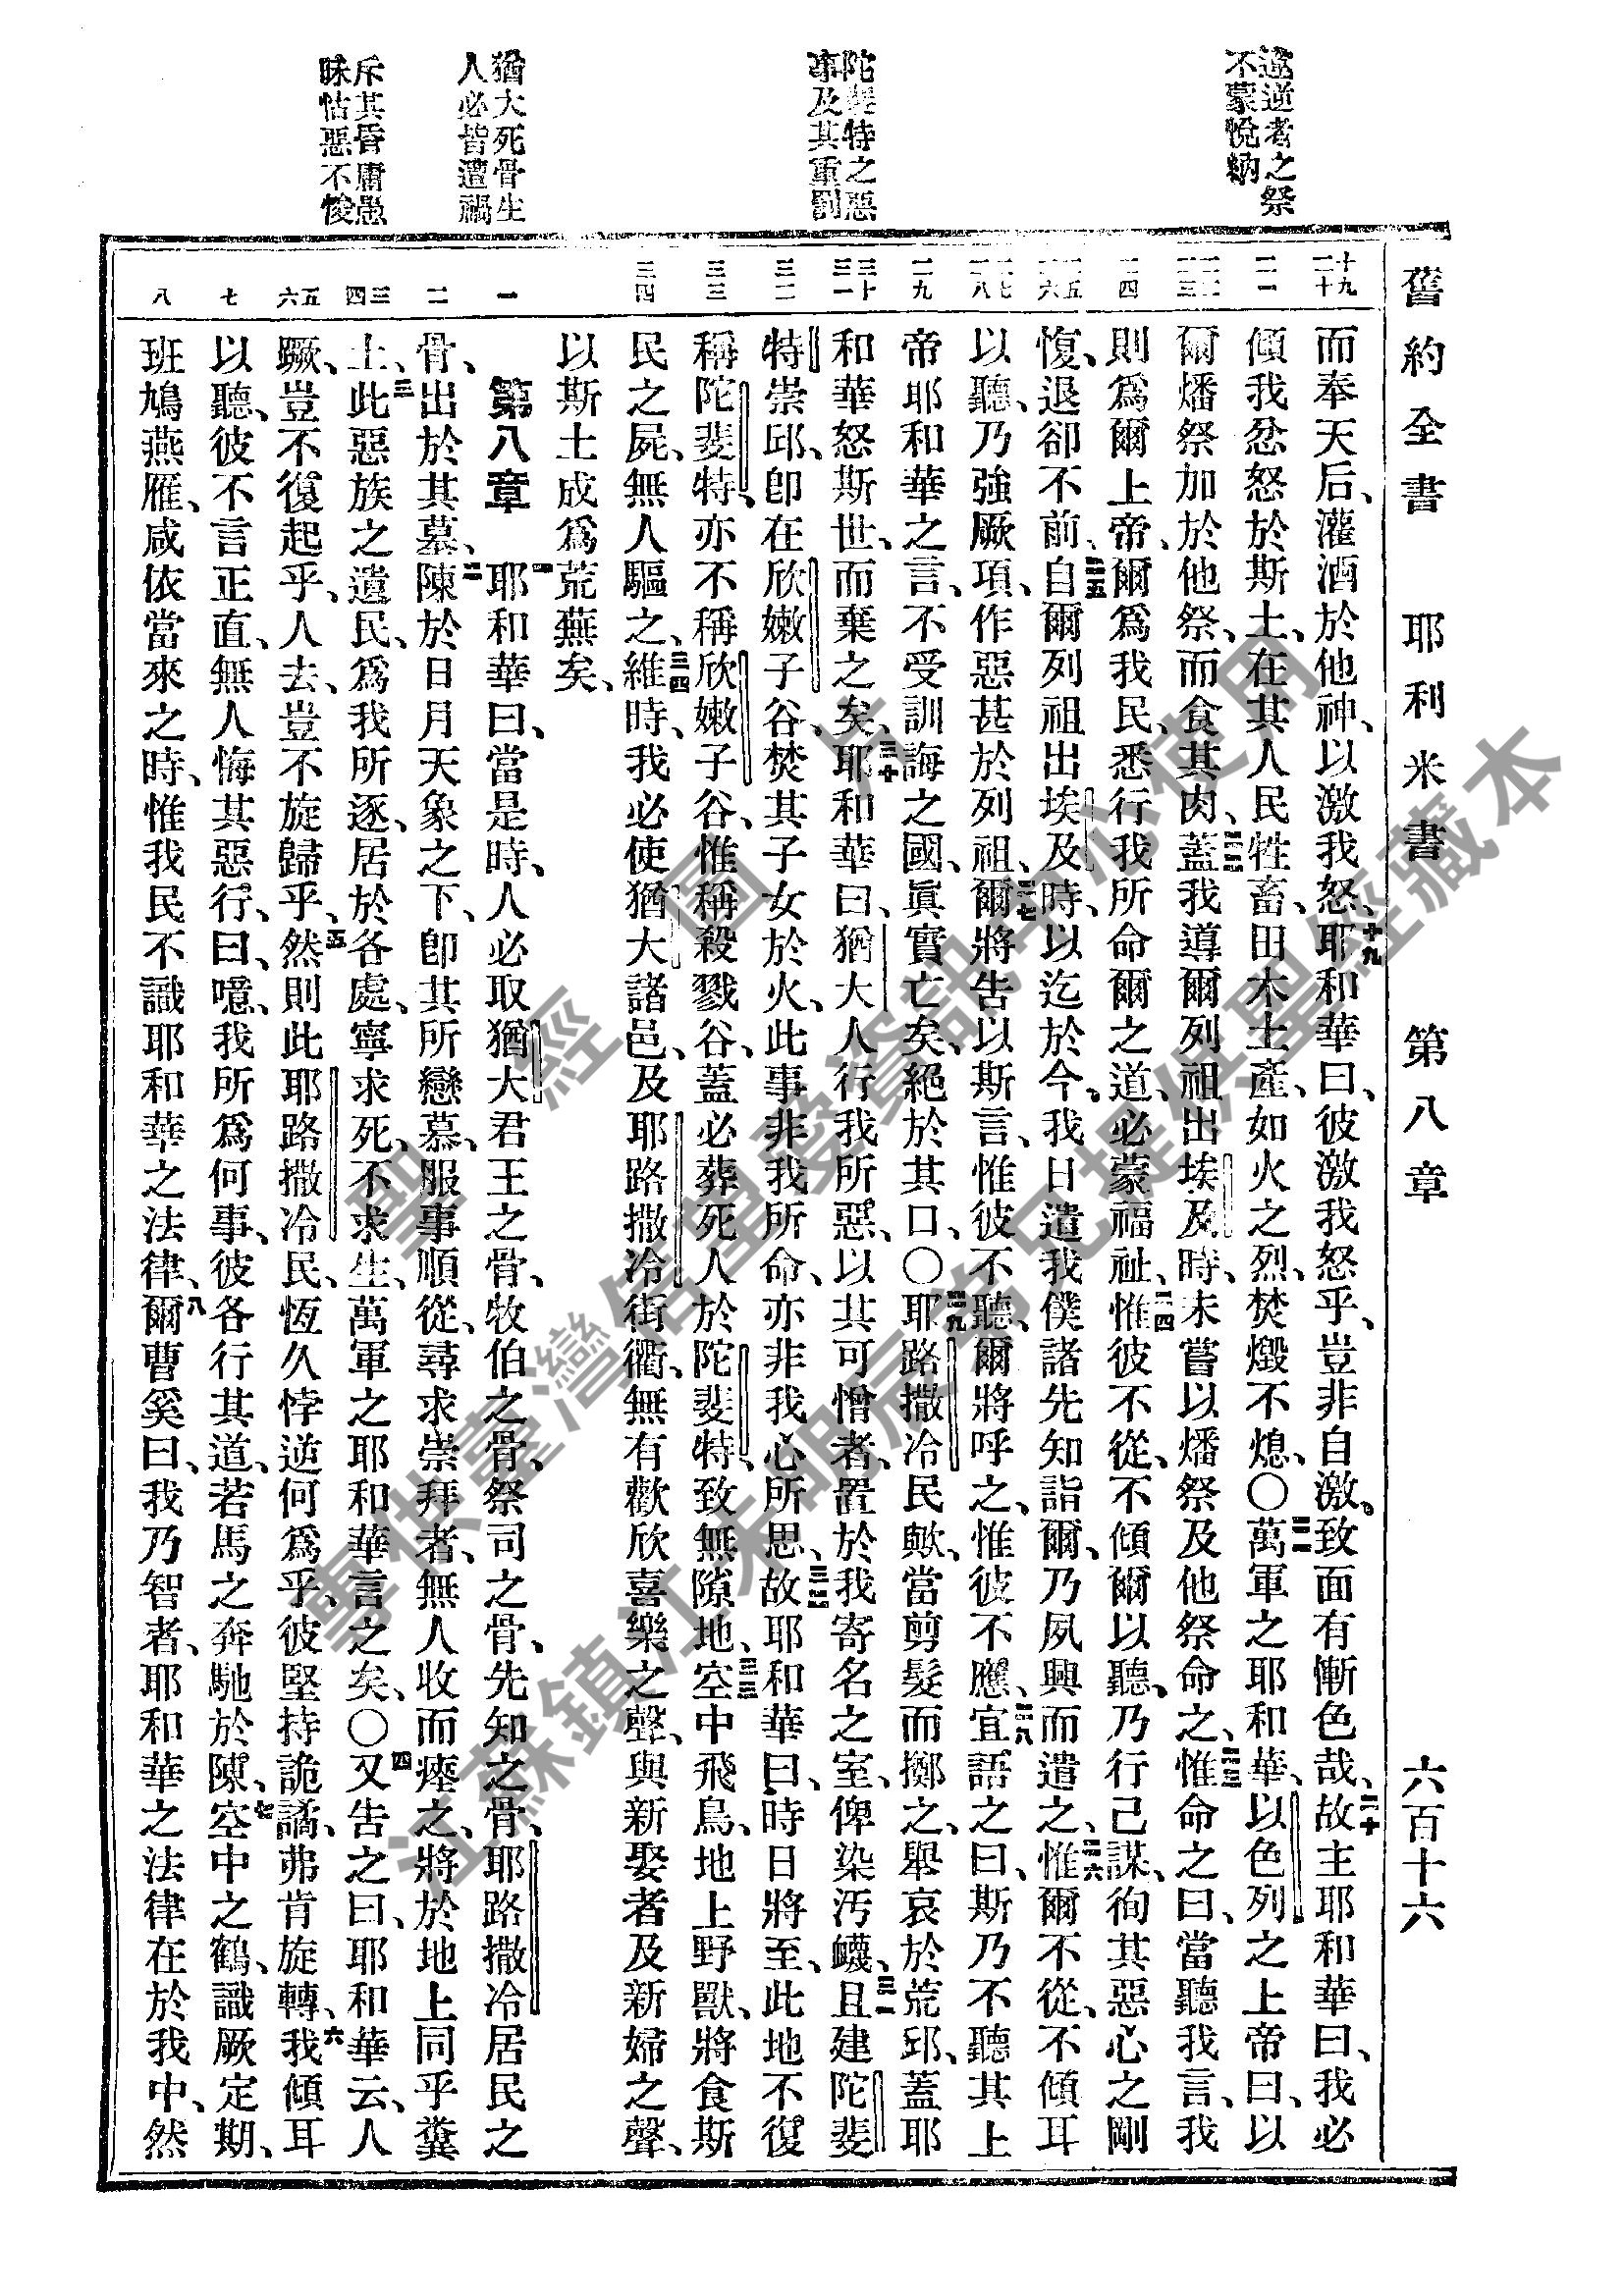 舊約全書　耶利米書　第八章　六百十六
違逆者之祭
不蒙悅納
陀斐特之惡
事及其重罰
猶大死骨生
人必皆遭禍
斥其昏庸愚
昧怙惡不悛
而奉天后、灌酒於他神、以激我怒、十九耶和華曰、彼激我怒乎、豈非自激、致面有慚色哉、二十故主耶和華曰、我必
傾我忿怒於斯土、在其人民牲畜、田木土產、如火之烈、焚燬不熄、○二一萬軍之耶和華、以色列之上帝曰、以
爾燔祭加於他祭、而食其肉、二二蓋我導爾列祖出埃及時、未嘗以燔祭及他祭命之、二三惟命之曰、當聽我言、我
則爲爾上帝、爾爲我民、悉行我所命爾之道、必蒙福祉、二四惟彼不從、不傾爾以聽、乃行己謀、徇其惡心之剛
愎、退卻不前、二五自爾列祖出埃及時、以迄於今、我日遣我僕諸先知詣爾、乃夙興而遣之、二六惟爾不從、不傾耳
以聽、乃強厥項、作惡甚於列祖、二七爾將告以斯言、惟彼不聽、爾將呼之、惟彼不應、二八宜語之曰、斯乃不聽其上
帝耶和華之言、不受訓誨之國、眞實亡矣、絕於其口、○二九耶路撒冷民歟、當剪髮而擲之、舉哀於荒邱、蓋耶
和華怒斯世、而棄之矣、三十耶和華曰、猶大人行我所惡、以其可憎者、置於我寄名之室、俾染汚衊、三一且建陀斐
特崇邱、卽在欣嫩子谷、焚其子女於火、此事非我所命、亦非我心所思、三二故耶和華曰、時日將至、此地不復
稱陀斐特、亦不稱欣嫩子谷、惟稱殺戮谷、蓋必葬死人於陀斐特、致無隙地、三三空中飛鳥、地上野獸、將食斯
民之屍、無人驅之、三四維時、我必使猶大諸邑、及耶路撒冷街衢、無有歡欣喜樂之聲、與新娶者及新婦之聲、
以斯土成爲荒蕪矣、
第八章　一耶和華曰、當是時、人必取猶大君王之骨、牧伯之骨、祭司之骨、先知之骨、耶路撒冷居民之
骨、出於其墓、二陳於日月天象之下、卽其所戀慕、服事順從、尋求崇拜者、無人收而瘞之、將於地上同乎糞
土、三此惡族之遺民、爲我所逐、居於各處、寧求死、不求生、萬軍之耶和華言之矣、○四又告之曰、耶和華云、人
蹶、豈不復起乎、人去、豈不旋歸乎、五然則此耶路撒冷民、恆久悖逆何爲乎、彼堅持詭譎、弗肯旋轉、六我傾耳
以聽、彼不言正直、無人悔其惡行、曰、噫、我所爲何事、彼各行其道、若馬之奔馳於陳、七空中之鶴、識厥定期、
班鳩燕雁、咸依當來之時、惟我民不識耶和華之法律、八爾曹奚曰、我乃智者、耶和華之法律在於我中、然
聖經圖片
專供臺灣信望愛資訊中心使用
江蘇鎮江朱明辰弟兄提供聖經藏本